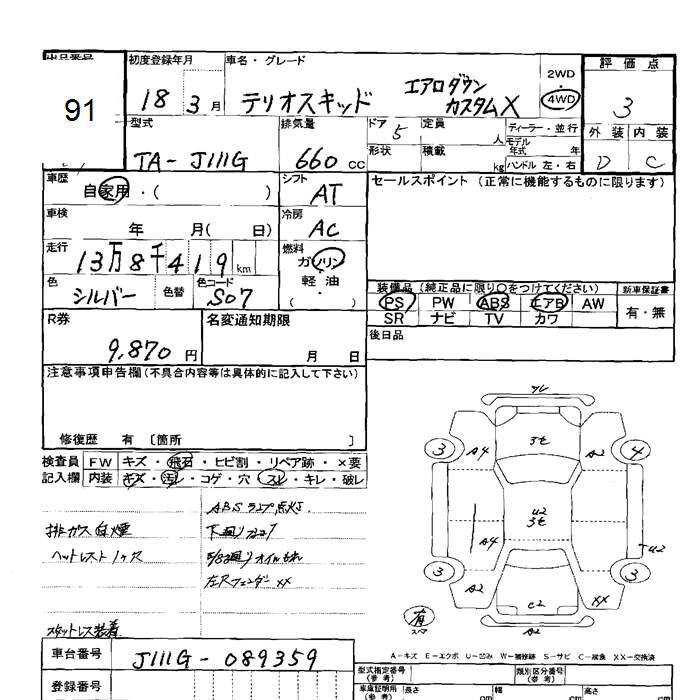 出品番号 初度登録年月 車名・グレード 2WD 評価点
91 18 3月 テリオスキッド エアロダウン カスタムX 4WD 3
型式 排気量 ドア 5 定員 人 ディーラー・並行 外装 内装
TA-J111G 660 CC 形状 積載 kg モデル年式 年 ハンドル 左・右 D C
車歴 自家用・( ) シフト AT セールスポイント (正常に機能するものに限ります)
車検 年 月( 日) 冷房 AC
走行 13万8千419 km 燃料 ガソリン 軽油 ・ ( )
色 シルバー 色替 色コード S07
装備品 (純正品に限り○をつけてください) 新車保証書
PS PW ABS エアB AW 有・無
SR ナビ TV カワ
R券 9,870円 名変通知期限 月 日 後日品
注意事項申告欄(不具合内容等は具体的に記入して下さい)
修復歴 有 〔箇所 〕
検査員 FW キズ・飛石・ヒビ割・リペア跡・×要
記入欄 内装 キズ・汚レ・コゲ・穴・スレ・キレ・破レ
ABSランプ点灯.
排ガス白煙 下廻りサビ
ヘッドレスト1ケ欠
オイルもれ
左Rフェンダーxx
スタットレス装着
3 A4 A2 4
U2
A4 U2
3 A2 C2 XX 3
有
スペア
A-キズ E-エクボ U-凹み W-補修跡 S-サビ C-腐食 XX-交換済
車台番号 J111G-089359 型式指定番号(参考) 類別区分番号(参考)
登録番号 車庫証明用(参考) 長さ cm 幅 cm 高さ cm